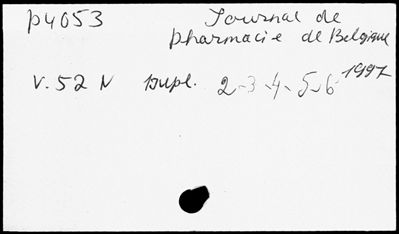 p4053 Journal de
pharmacie de Belgique
V. 52 N Dupl. 2-3-4-5-6 1997